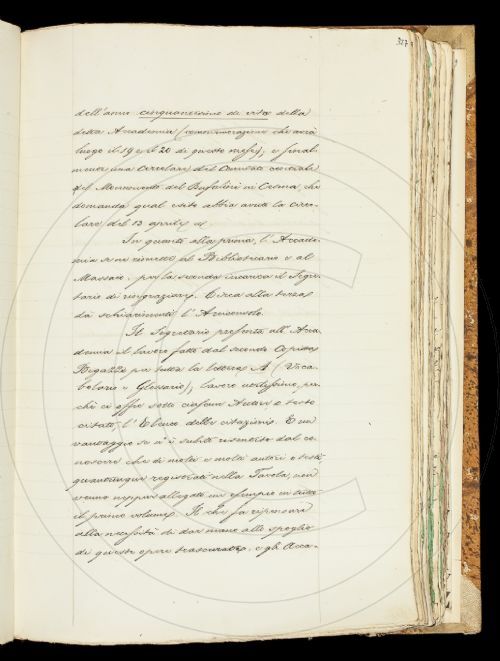 327
dell'anno cinquantesimo di vita della
detta Accademia (commemorazione che avrà
luogo il 19 e il 20 di questo mese); e final-
mente una Circolare del Comitato centrale
pel Monumento del Bufalini in Cesena, che
domanda qual esito abbia avuto la circo-
lare del 13 aprile
In quanto alla prima, l'Accade-
mia si è rimette al Bibliotecario e al
Massaio, per la seconda incarica il Segre-
tario di ringraziare. Circa alla terza
dà schiarimenti l'Arciconsolo.
Il Segretario presenta all'Acca-
demia il lavoro fatto dal
per tutta la lettera A (Voca-
bolario e Glossario), lavoro utilissimo, per-
chè ci offre sotto ciascun Autore o testo
citato, l'Elenco delle citazioni. E un
vantaggio se n'è subito risentito dal co-
noscere che di molti e molti autori e testi
quantunque registrati nella Tavola, non
venne neppure allegato un esempio in tutto
il primo volume. Il che fa ripensare
alla necessità di dar mano allo spoglio
di queste opere trascurate, e gli Acca-